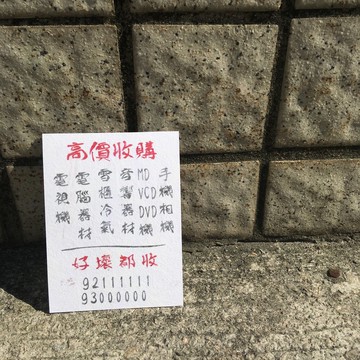 高價收購
電視機
電腦器材
雪櫃冷氣
音響器材
MD VCD DVD機
手機相機
好壞都收
92111111
93000000